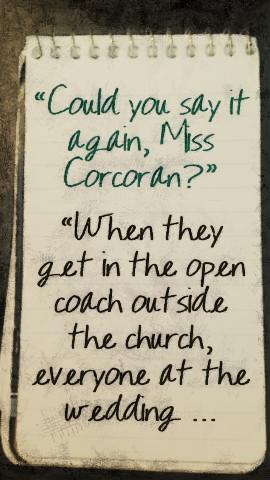 “Could you say it
again, Miss
Corcoran?”
“When they
get in the open
coach outside
the church,
everyone at the
wedding ...